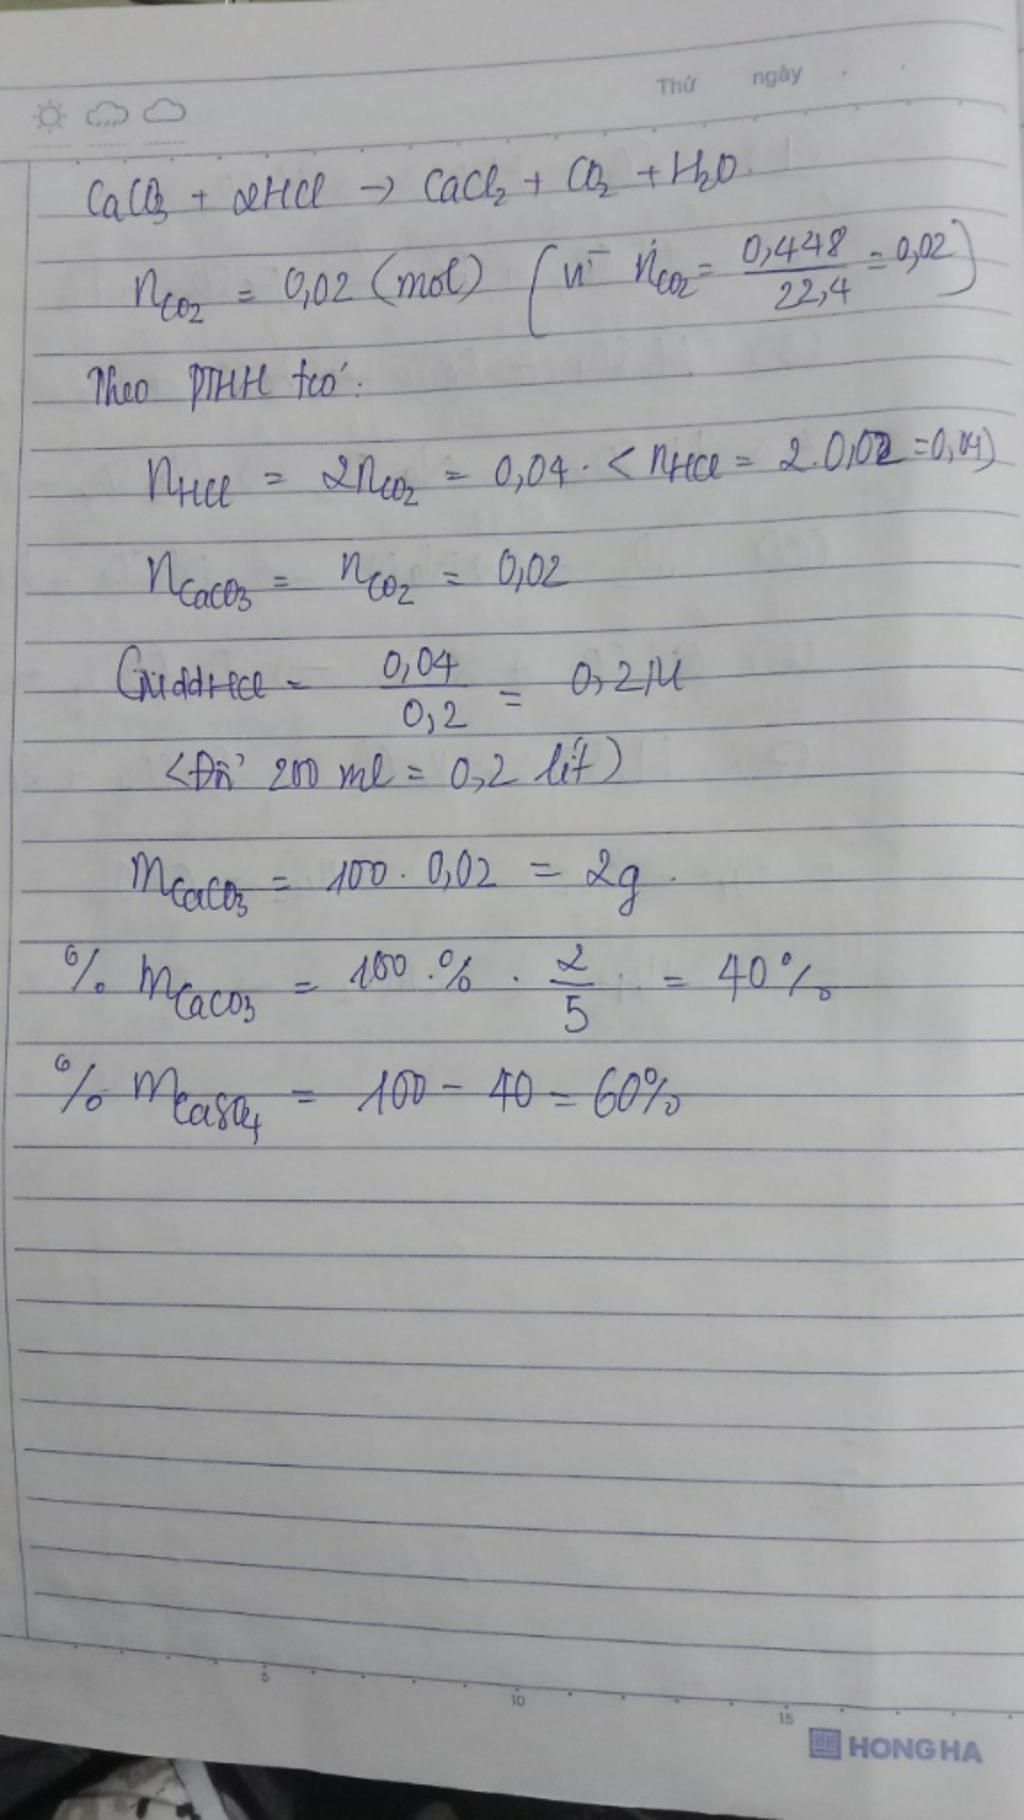 Thứ ngày
CaCO3 + 2HCl → CaCl2 + CO2 + H2O.
nCO2 = 0,02 (mol) (vì nCO2 = 0,448/22,4 = 0,02)
Theo PTHH tcó:
nHCl = 2nCO2 = 0,04. <nHCl = 2.0,02 = 0,04)
nCaCO3 = nCO2 = 0,02
= 0,04/0,2 = 0,2M
<Đổi 200 ml = 0,2 lít)
mCaCO3 = 100. 0,02 = 2g.
% mCaCO3 = 100.% . 2/5 = 40%
% mCaSO4 = 100 - 40 = 60%
5 10 15
HONG HA